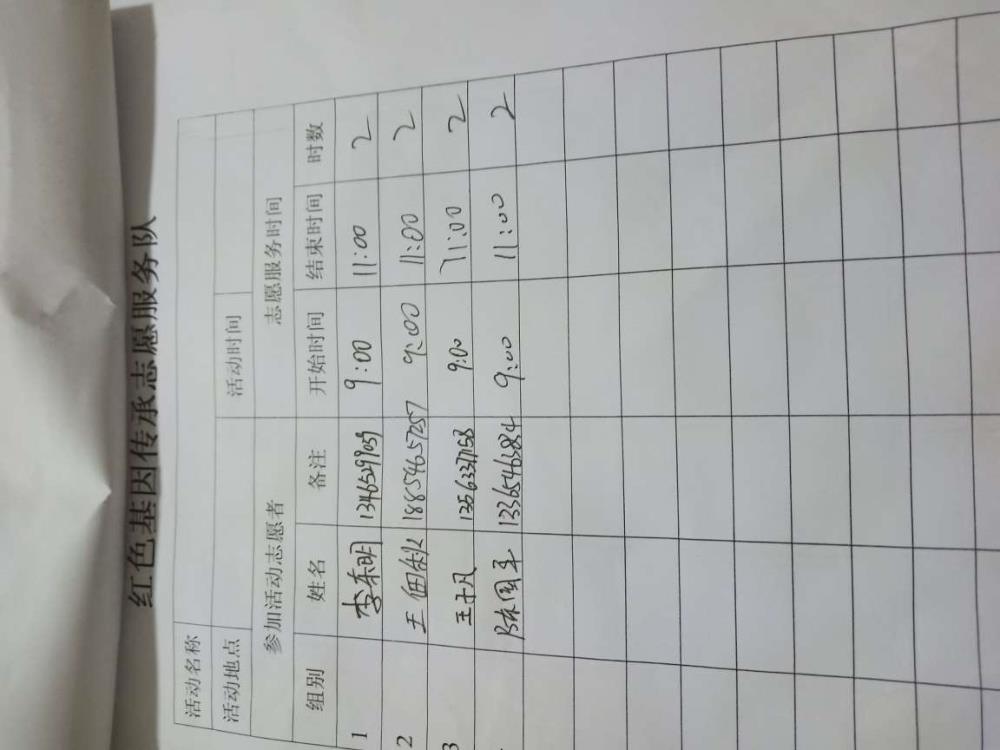 红色基因传承志愿服务队
活动名称
活动地点 活动时间
参加活动志愿者 志愿服务时间
组别 姓名 备注 开始时间 结束时间 时数
1 李东明 13465299059 9:00 11:00 2
2 王 18854657257 9:00 11:00 2
3 王凡 13563377158 9:00 11:00 2
陈国平 1336546384 9:00 11:00 2